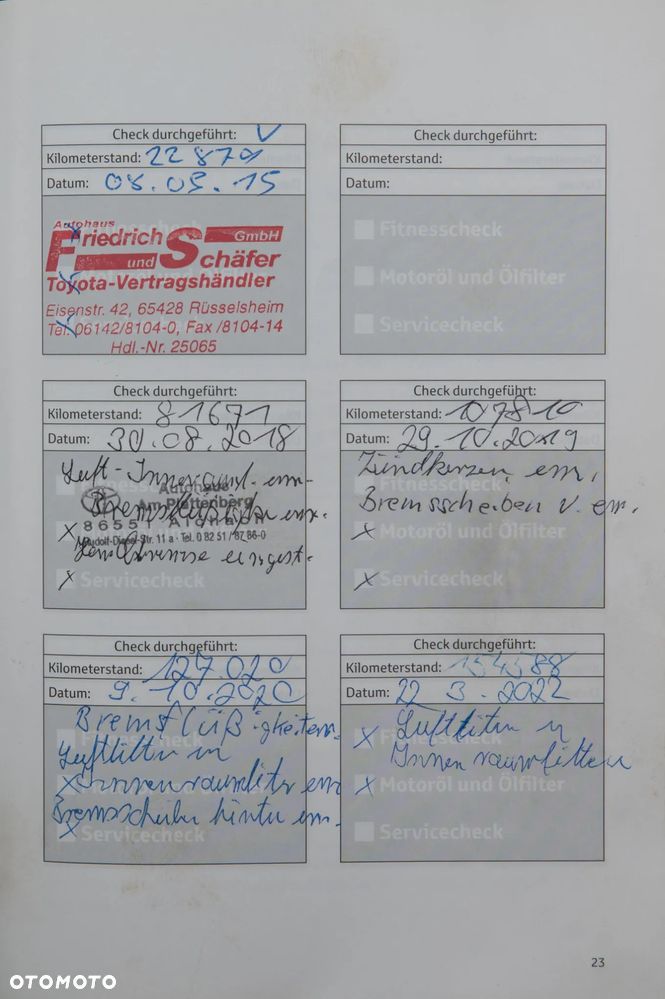 Check durchgeführt: V
Kilometerstand: 22 870
Datum: 08.05.15
Autohaus
Friedrich GmbH
und Schäfer
Toyota-Vertragshändler
Eisenstr. 42, 65428 Rüsselsheim
Tel. 06142/8104-0, Fax /8104-14
Hdl.-Nr. 25065
Check durchgeführt:
Kilometerstand:
Datum:
Fitnesscheck
Motoröl und Ölfilter
Servicecheck
Check durchgeführt:
Kilometerstand: 81671
Datum: 30.08.2018
Luft-
Autohaus
Am Plattenberg
8655 Aichach
Rudolf-Diesel-Str. 11 a · Tel. 0 82 51 / 87 86-0
x
x Servicecheck
Check durchgeführt:
Kilometerstand: 107810
Datum: 29.10.2019
Zündkerzen ern.
Fitnesscheck
Bremsscheiben v. ern.
x Motoröl und Ölfilter
x Servicecheck
Check durchgeführt:
Kilometerstand: 127.020
Datum: 9.10.2020
Bremsflüßigkeit ern.
Luftfilter
x Innenraumfilter ern
Bremsscheiben hinten ern.
x Servicecheck
Check durchgeführt:
Kilometerstand: 154588
Datum: 22 3.2022
x Luftfilter u
Innenraumfilter
x Motoröl und Ölfilter
Servicecheck
23
OTOMOTO